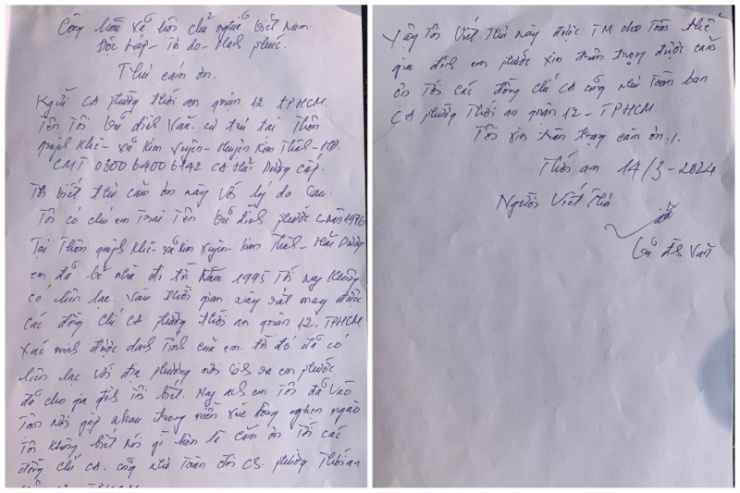 Cộng hòa xã hội chủ nghĩa Việt Nam
Độc lập - Tự do - Hạnh phúc.
Thư cảm ơn.
Kính gửi CA phường thới an quận 12 TPHCM.
Tên Tôi Vũ đình Văn. cư trú tại Thôn
quỳnh khê - xã kim xuyên - Huyện Kim Thành - HD.
CMT 030064006142 CA Hải Dương Cấp.
Tôi viết thư cảm ơn này với lý do sau.
Tôi có chú em Trai Tên Vũ đình phước 1976
Tại Thôn quỳnh khê - xã kim xuyên - kim Thành - Hải Dương
em đã bỏ nhà đi từ năm 1995 Tới nay không
có liên lạc. Vào thời gian này rất may được
các đồng chí CA phường thới an quận 12 - TPHCM
xác minh được danh tính của em tôi đó đã có
liên lạc với địa phương nơi sinh ra em phước
để cho gia đình tôi biết. Nay anh em Tôi đã vào
Tận nơi gặp nhau trong niềm xúc động nghẹn ngào
Tôi không biết nói gì hơn là cảm ơn Tới các
đồng chí CA. cũng như Toàn đội CS. phường Thới an
Vậy Tôi Viết Thư này được TM cho Toàn thể
gia đình em phước xin trân trọng được cảm
ơn Tới các đồng chí CA cũng như Toàn ban
CA phường Thới an quận 12 - TPHCM.
Tôi xin trân trọng cảm ơn./.
Thới an 14/3 - 2024
Người Viết Thư
Vũ đình Văn